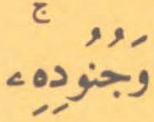 وَجُنُودِهِۦ ۚ